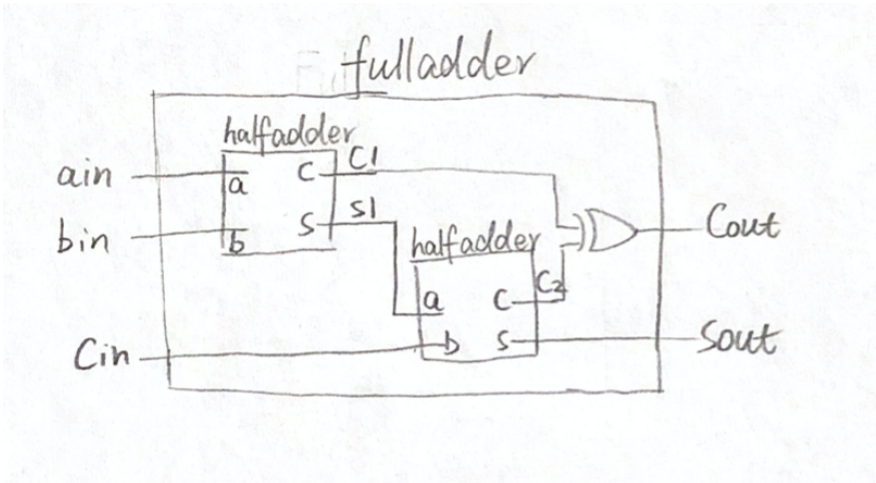 fulladder
halfadder
ain
a
C
C1
bin
b
S
S1
halfadder
Cout
a
C
C2
Cin
b
S
Sout